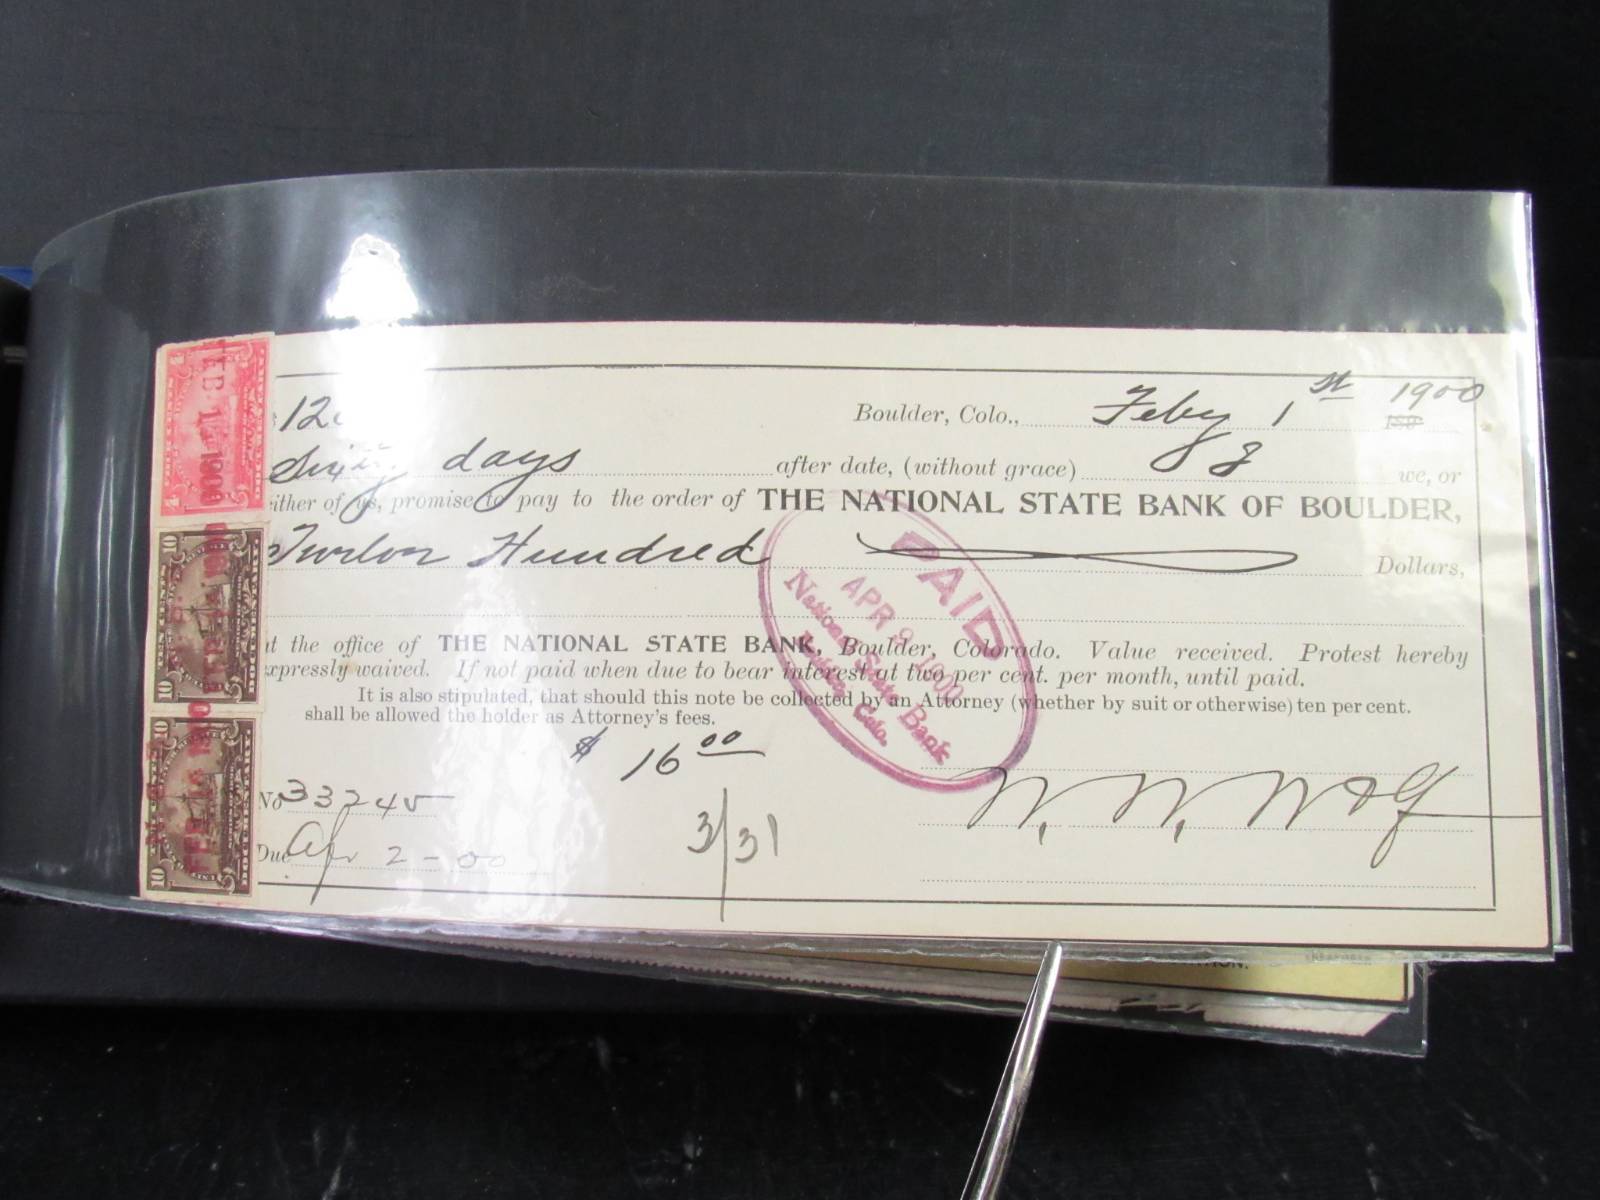 Boulder, Colo., Feby 1st 1900
Sixty days after date, (without grace) we, or
either of us, promise to pay to the order of THE NATIONAL STATE BANK OF BOULDER,
Hundred Dollars,
at the office of THE NATIONAL STATE BANK, Boulder, Colorado. Value received. Protest hereby
expressly waived. If not paid when due to bear interest at two per cent. per month, until paid.
It is also stipulated, that should this note be collected by an Attorney (whether by suit or otherwise) ten per cent.
shall be allowed the holder as Attorney's fees.
$ 16 00
No 33245
Due Apr 2-00
3/31
W. W. Wolf
PAID
APR 2 1900
National State Bank
Boulder, Colo.
10 10
TEN CENTS
DOCUMENTARY
10 10
DOCUMENTARY
10